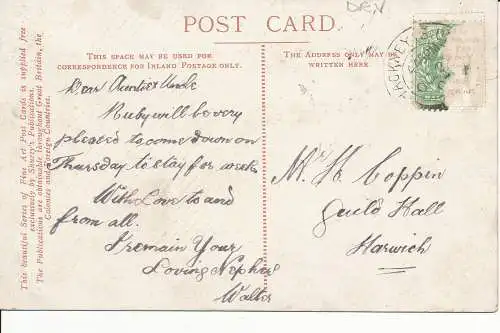 DEN
POST CARD.
THIS SPACE MAY BE USED FOR
CORRESPONDENCE FOR INLAND POSTAGE ONLY.
THE ADDRESS ONLY MAY BE
WRITTEN HERE
This beautiful Series of Fine Art Post Cards is supplied free
exclusively by Shurey's Publications.
The Publications are obtainable throughout Great Britain, the
Colonies and Foreign Countries.
Dear Auntie & Uncle
Ruby will be very
pleased to come down on
Thursday to stay for week
With Love to and
from all.
I remain Your
Loving Nephew
Walter
Mr H. Coppin
Guild Hall
Harwich